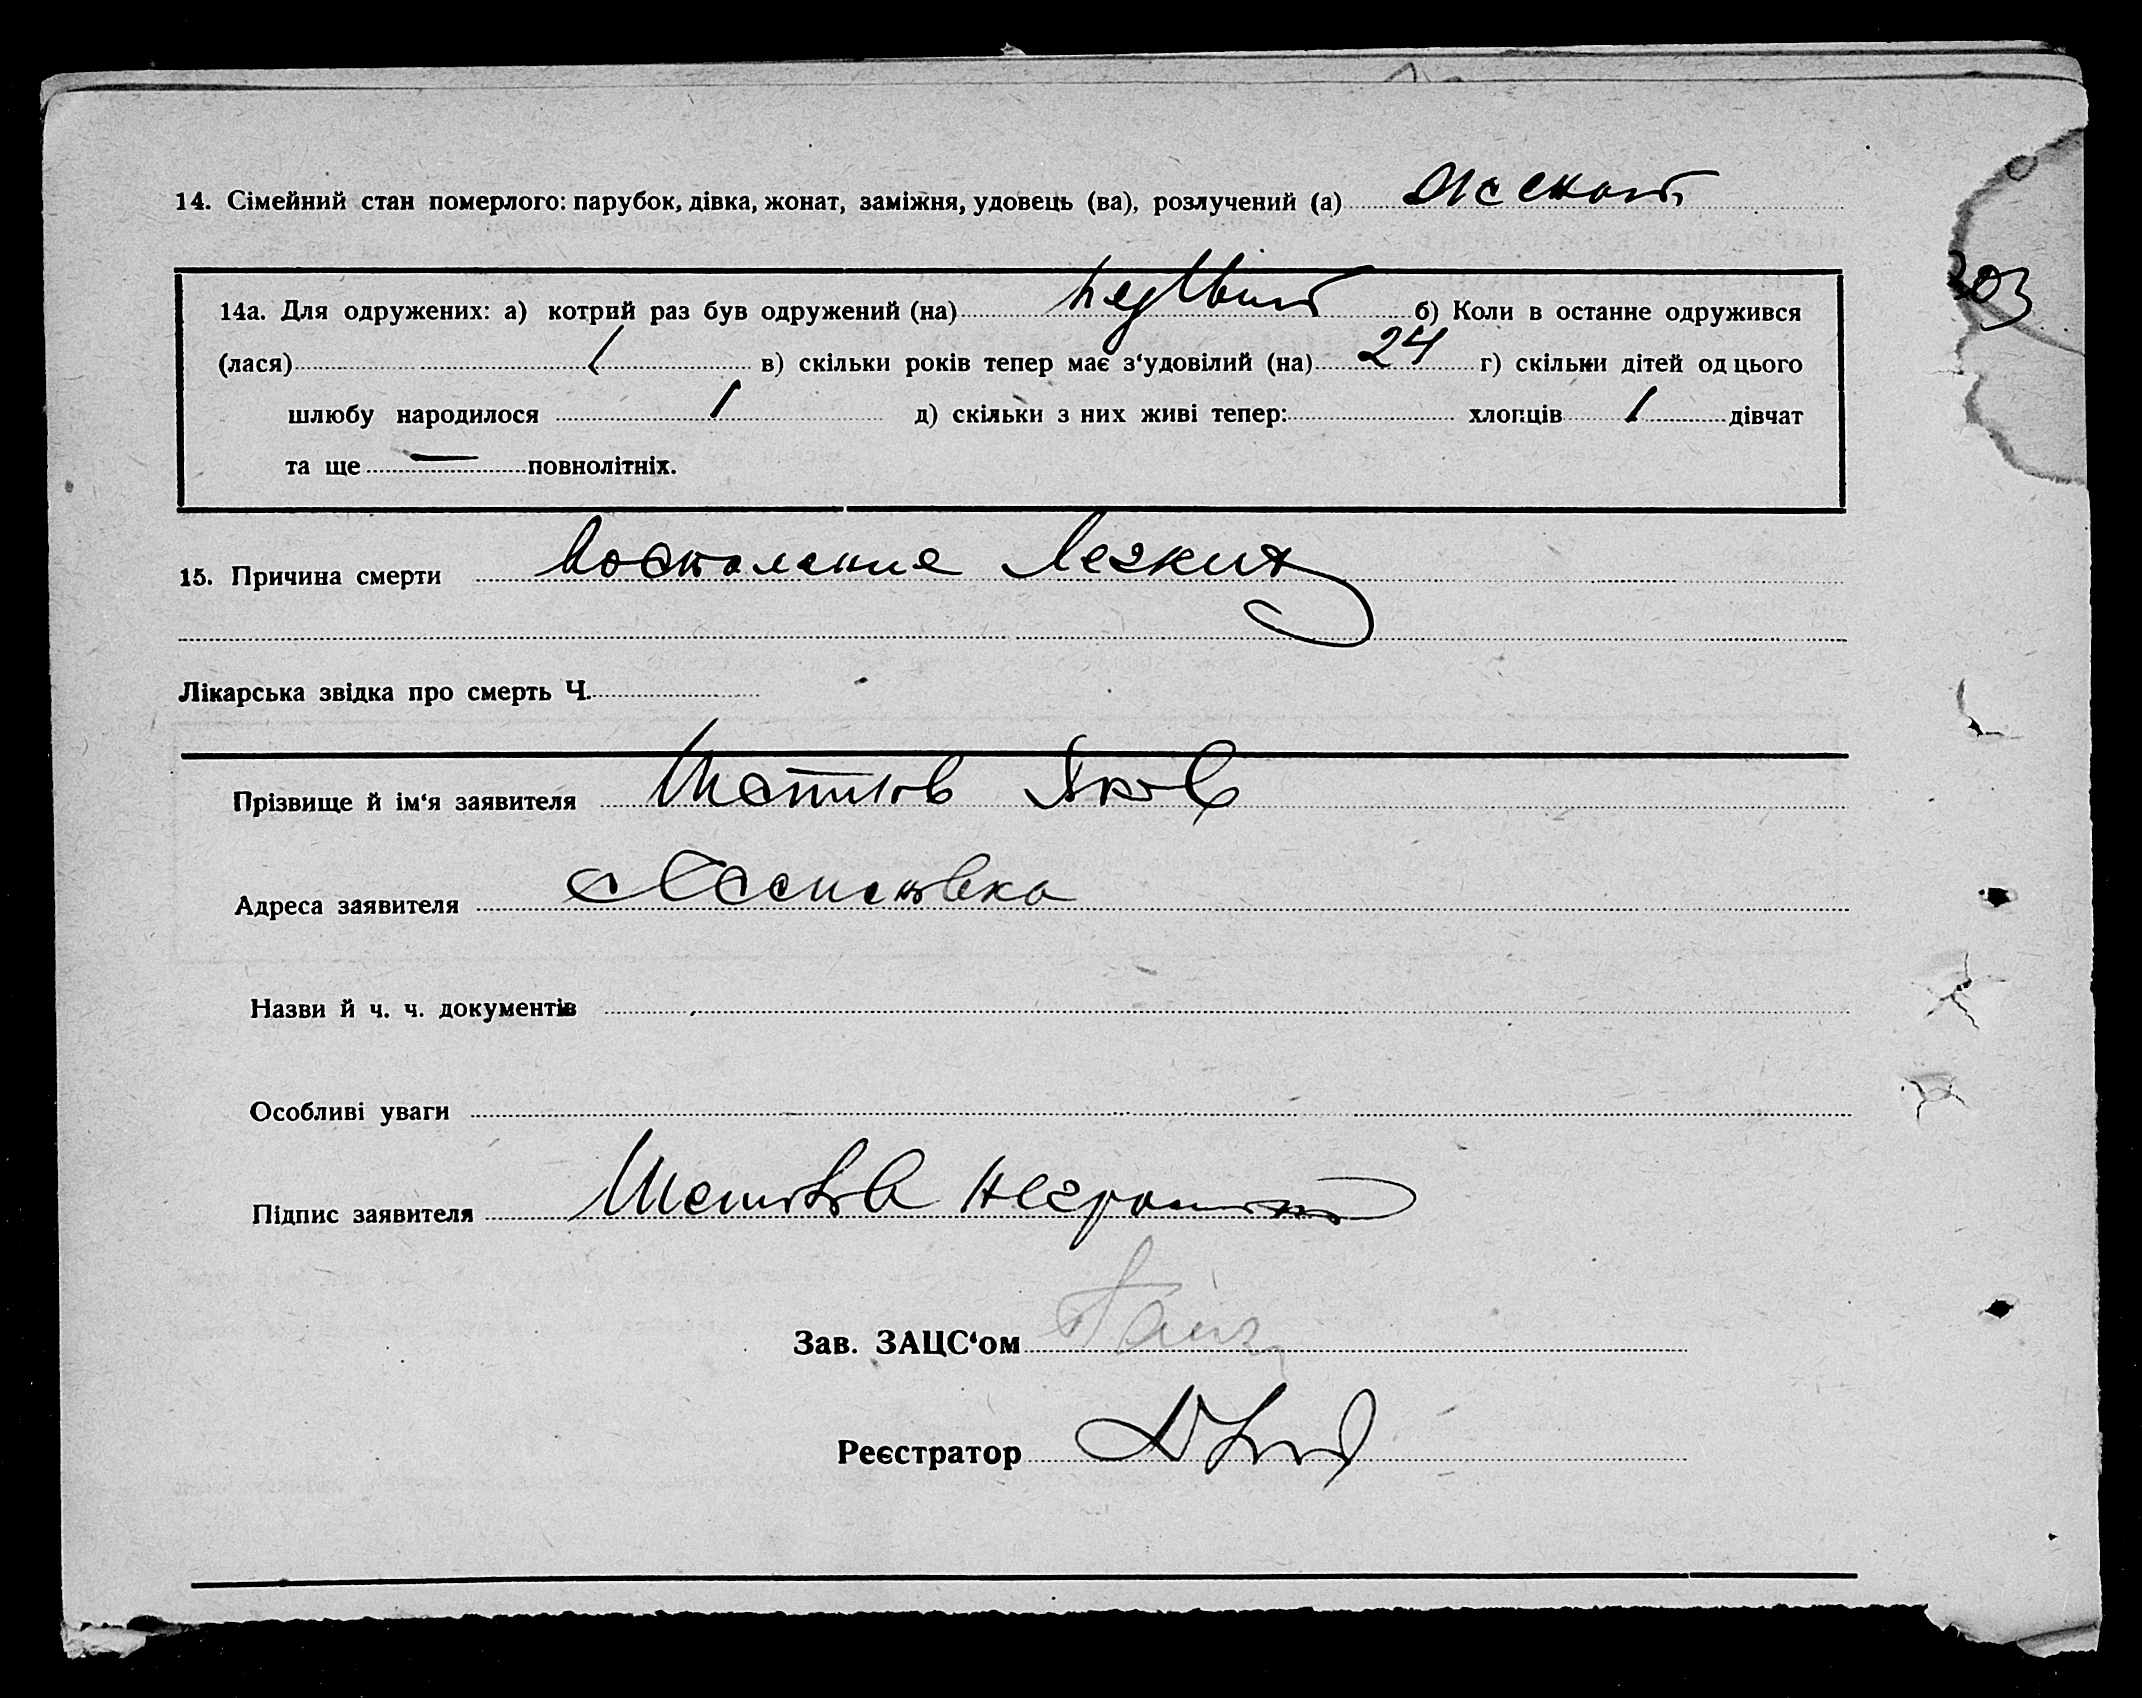 14. Сімейний стан померлого: парубок, дівка, жонат, заміжня, удовець (ва), розлучений (а) женат
303
14а. Для одружених: а) котрий раз був одружений (на) первый б) Коли в останне одружився
(лася) / в) скільки років тепер має з‘удовілий (на) 24 г) скільки дітей од цього
шлюбу народилося 1 д) скільки з них живі тепер: хлопців 1 дівчат
та ще — повнолітніх.
15. Причина смерти Воспаление Легких
Лікарська звідка про смерть Ч.
Прізвище й ім‘я заявителя Яков
Адреса заявителя с
Назви й ч. ч. документів
Особливі уваги
Підпис заявителя неграмотн
Зав. ЗАЦС‘ом
Реєстратор